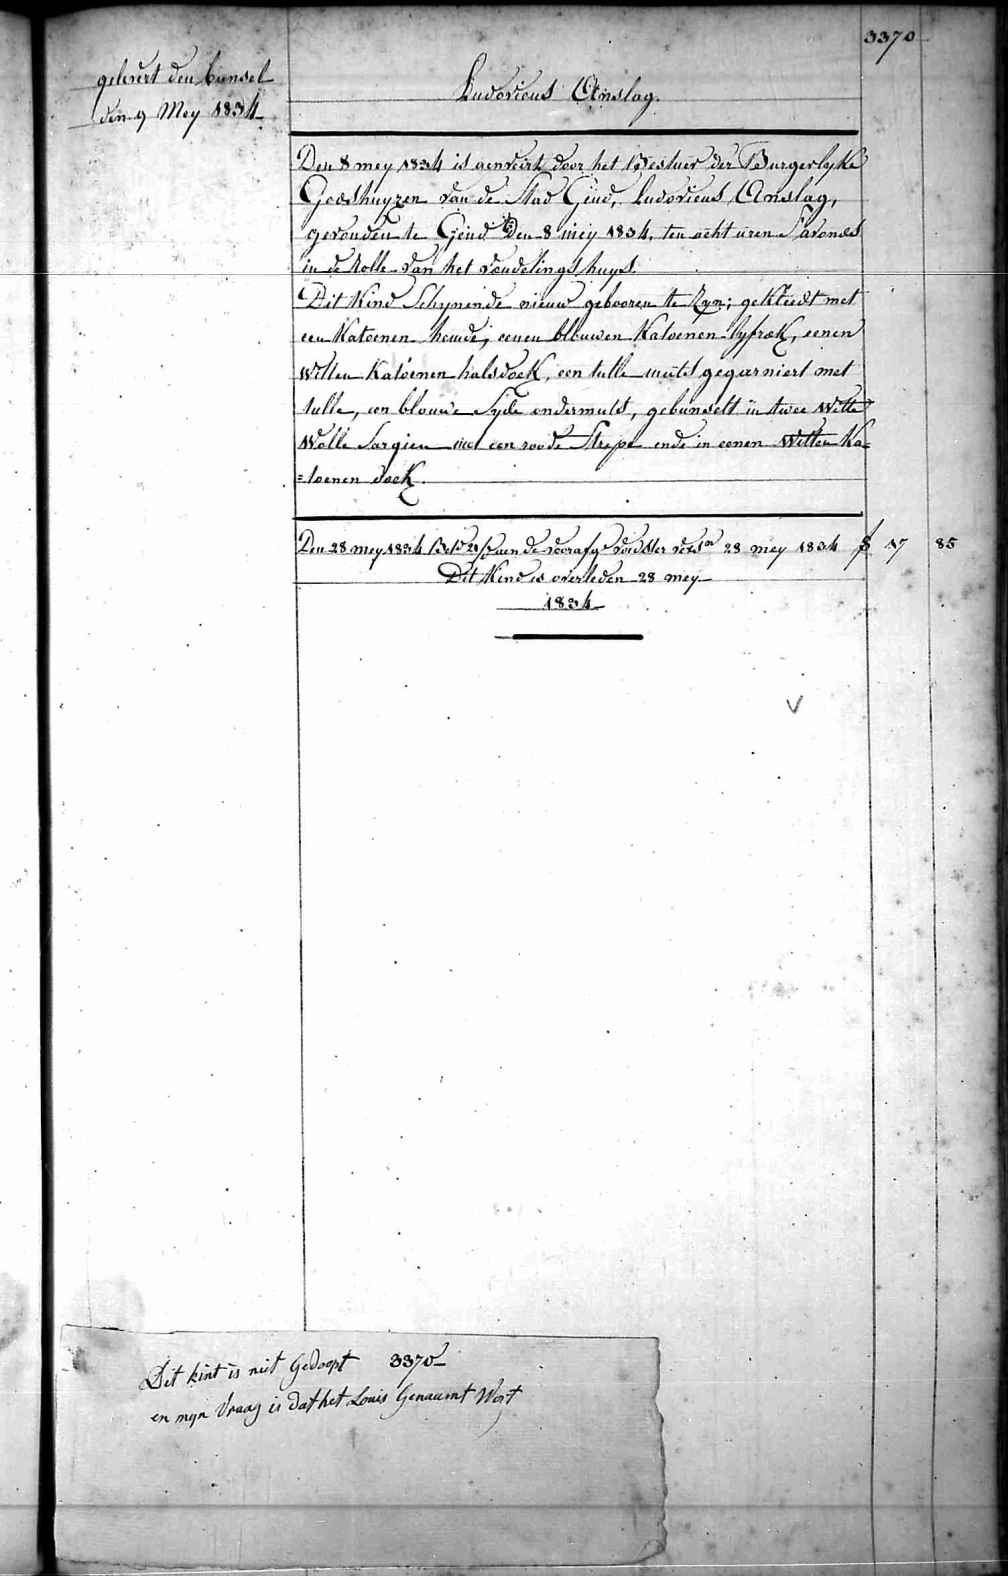 3370
gelevert den bunsel
den 9 Mey 1834
Ludovicus Anslag.
Den 8 mey 1834 is aenveirt door het Bestuer der Burgerlyke
Godshuyzen van de Stad Gend, Ludovicus Anslag,
gevonden te Gend Den 8 mey 1834, ten acht uren S'avonds
in de Rolle van het vondelingshuys.
Dit Kind Schynende nieuw gebooren te Zyn; gekleedt met
een Katoenen hemde, eenen blauwen Katoenen lyfrok, eenen
Witten Katoenen halsdoek, een tulle muts gegarniert met
tulle, een blouwe Syde ondermuts, gebunselt in twee Witte
Wolle Sargien met een roode Strepe ende in eenen Witten Ka=
=toenen doek.
Den 28 mey 1834 aen de voorafge voedster 28 mey 1834 17 85
Dit Kind is overleden 28 mey
1834
Dit kint is niet Gedoopt 3370
en myn Vraag is dat het Louis Genaemt Wort